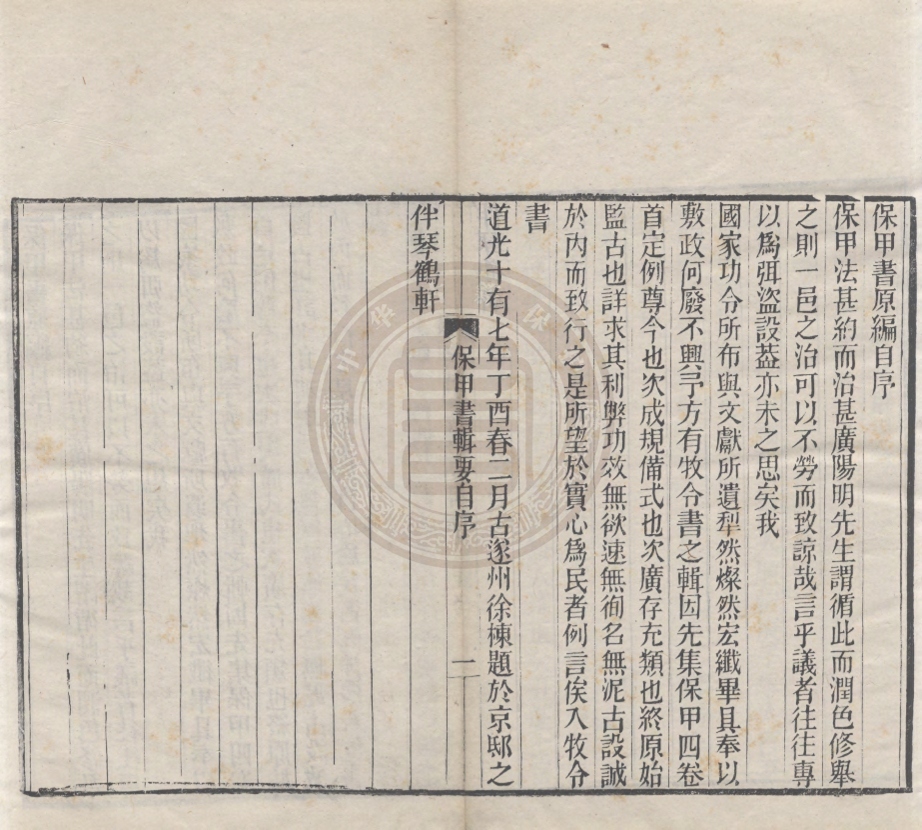 保甲書原編自序
保甲法甚約而治甚廣陽明先生謂循此而潤色修舉
之則一邑之治可以不勞而致諒哉言乎議者往往專
以爲弭盜設葢亦未之思矣我
國家功令所布與文獻所遺犁然燦然宏纖畢具奉以
敷政何廢不興予方有牧令書之輯因先集保甲四卷
首定例尊今也次成規備式也次廣存充類也終原始
監古也詳求其利弊功效無欲速無徇名無泥古設誠
於內而致行之是所望於實心爲民者例言俟入牧令
書
道光十有七年丁酉春二月古遂州徐棟題於京邸之
保甲書輯要自序
一
伴琴鶴軒